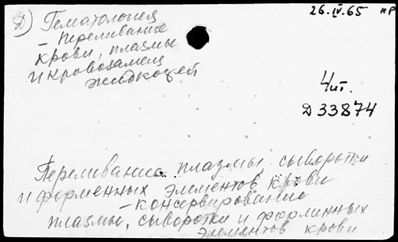 Д) Гематология
- Переливание
крови, плазмы
и кровозамещ
жидкостей
26.IV.65 нр
Чит.
Д 33874
Переливание плазмы сыворотки
и форменных элементов крови
- консервирование
плазмы, сыворотки и форминных
элементов крови